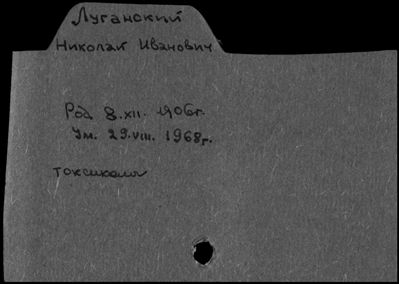 Луганский
Николай Иванович
Род 8.XII. 1906г.
Ум. 29.VIII. 1968г.
токсиколог